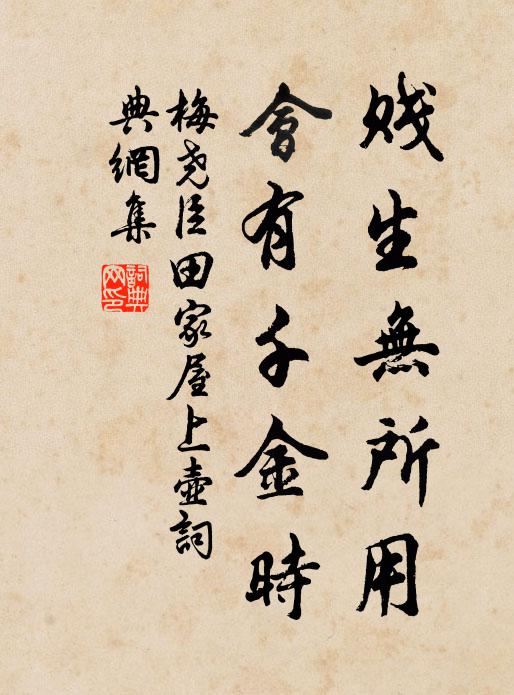 賤生無所用
會有千金時
梅尧臣田家屋上壺詞
典網集
詞典网印